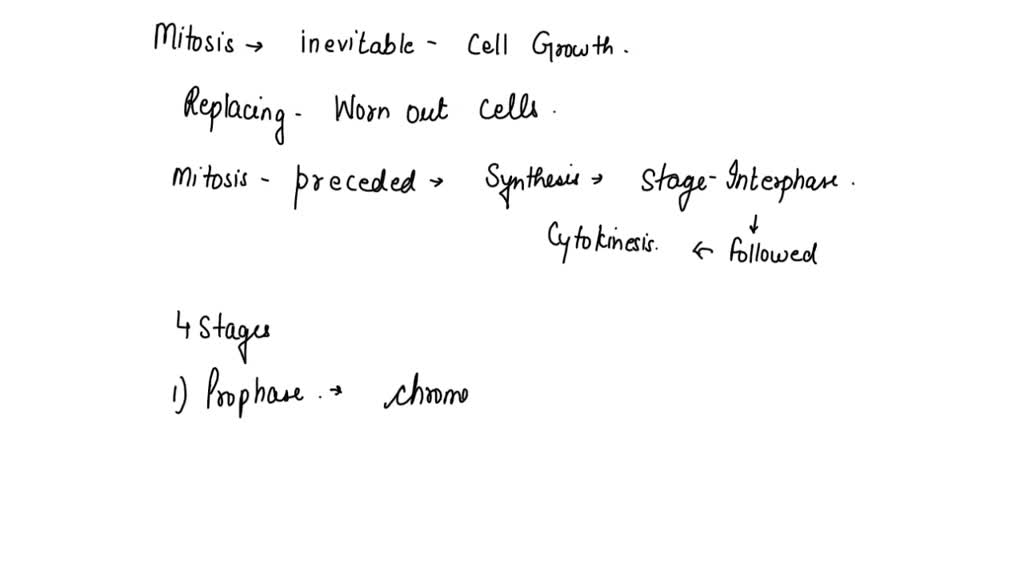 Mitosis → inevitable - Cell Growth.
Replacing - Worn out cells.
Mitosis - preceded → Synthesis → Stage - Interphase.
↓
Cytokinesis. ← followed
4 Stages
1) Prophase. → chromo